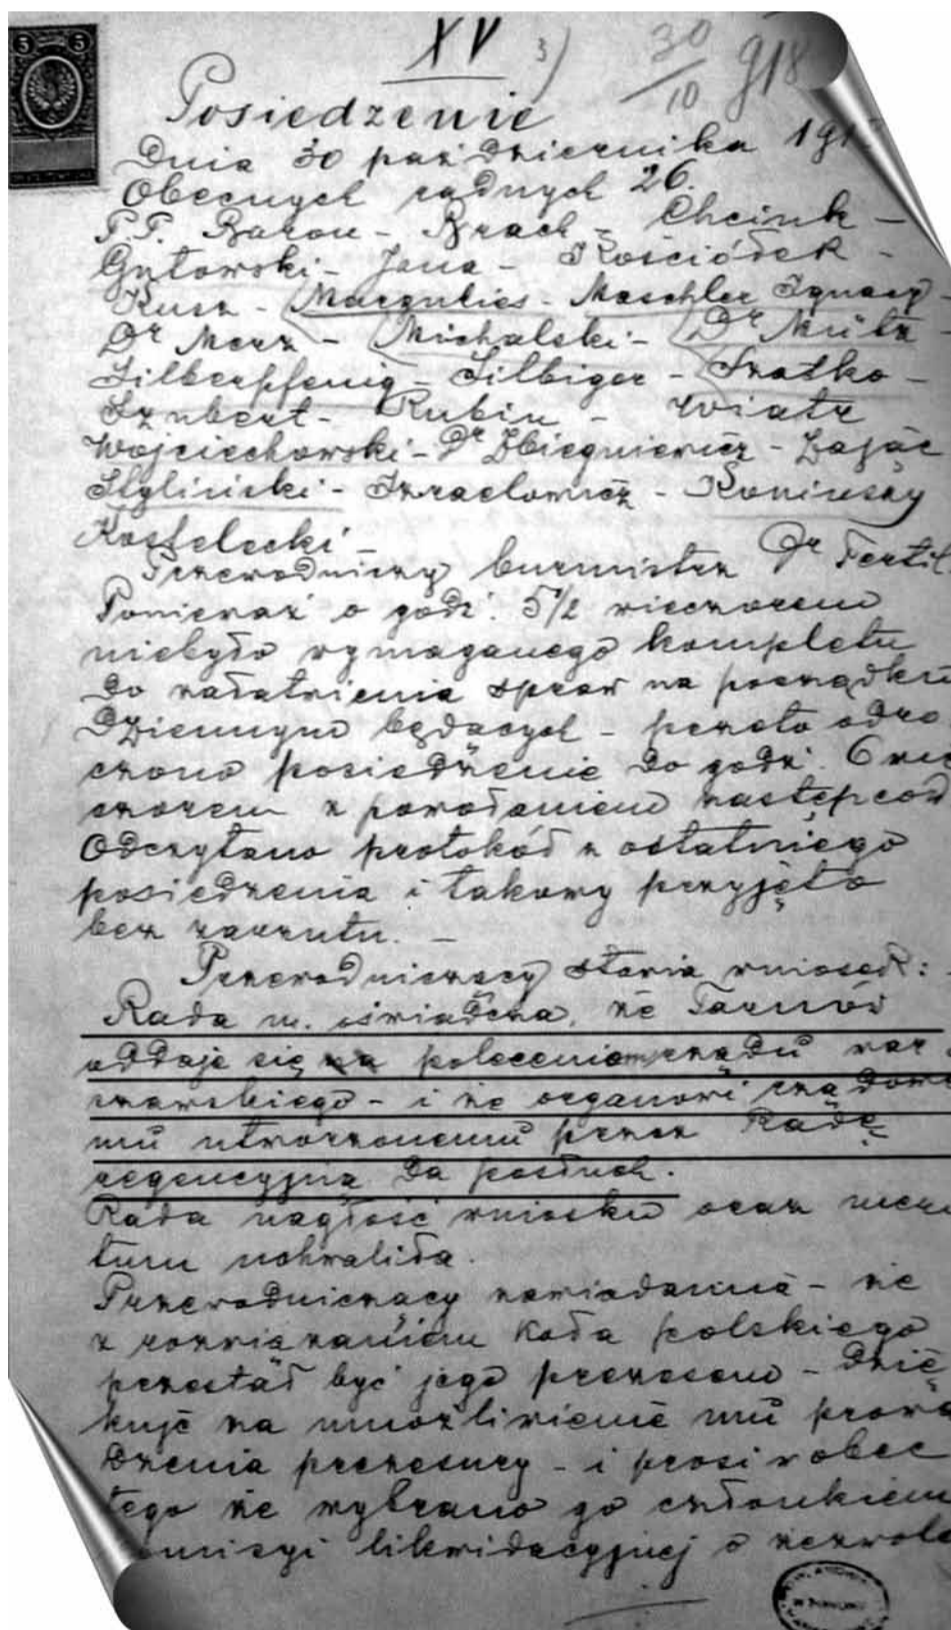 5 5
XV 3) 30/10 918
Posiedzenie
Dnia 30 października 191
Obecnych radnych 26.
P.P. Baron - Brach - Chciuk -
Gutowski - Jana - Kościółek -
Kusz - Margulies - Maschler Ignacy -
Dr Merz - Michalski - Dr Mütz -
Silberpfenig - Silbiger - Szatko -
Szubert - Rubin - Wiatr
Wojciechowski - Dr Zbiegniewicz - Zając
Styliński - Izraelowicz - Koniuszy
Kostelecki -
Przewodniczy burmistrz Dr Tertil.
Ponieważ o godz. 5 1/2 wieczorem
niebyło wymaganego kompletu
do załatwienia spraw na porządku
dziennym będących - przeto odro
czono posiedzenie do godz. 6 wie
czorem z powołaniem zastępców
Odczytano protokół z ostatniego
posiedzenia i takowy przyjęto
bez zarzutu. -
Przewodniczący stawia wniosek:
Rada m. oświadcza, że Tarnów
oddaje się na polecenia rządu war
szawskiego - i że organowi rządowe
mu utworzonemu przez Radę
regencyjną da posłuch.
Rada nagłość wniosku oraz mery
tum uchwaliła.
Przewodniczący zawiadamia - że
z rozwiązaniem Koła polskiego
przestał być jego prezesem - dzię
kuje za umożliwienie mu prowa
dzenia prezesury - i prosi wobec
tego że wybrano go członkiem
omisyi likwidacyjnej o zezwole